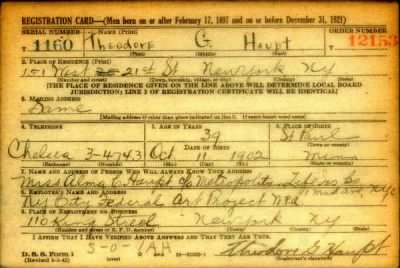 REGISTRATION CARD—(Men born on or after February 17, 1897 and on or before December 31, 1921)
SERIAL NUMBER 1. NAME (Print) ORDER NUMBER
T 1160 Theodore G Haupt 12153
(First) (Middle) (Last)
2. PLACE OF RESIDENCE (Print)
151 West 21st St New York NY
(Number and street) (Town, township, village, or city) (County) (State)
[THE PLACE OF RESIDENCE GIVEN ON THE LINE ABOVE WILL DETERMINE LOCAL BOARD
JURISDICTION; LINE 2 OF REGISTRATION CERTIFICATE WILL BE IDENTICAL]
3. MAILING ADDRESS
Same
[Mailing address if other than place indicated on line 2. If same insert word same]
4. TELEPHONE 5. AGE IN YEARS 6. PLACE OF BIRTH
39 St Paul
DATE OF BIRTH
Chelsea 3-4743 Oct 11 1902 Minn
7. NAME AND ADDRESS OF PERSON WHO WILL ALWAYS KNOW YOUR ADDRESS
Miss Alma C Haupt c/o Metropolitan Life Ins Co
8. EMPLOYER'S NAME AND ADDRESS
NY City Federal Art Project WPA
9. PLACE OF EMPLOYMENT OR BUSINESS
110 King Street New York NY
I AFFIRM THAT I HAVE VERIFIED ABOVE ANSWERS AND THAT THEY ARE TRUE.
D. S. S. Form 1
Theodore G Haupt